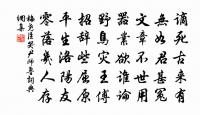 謫死古来有
無如君甚冤
文章不世用
器業欲誰論
野鳥灾王傅
招辞些屈原
平生洛陽友
零落幾人存
梅堯臣哭尹師魯詞典
網集